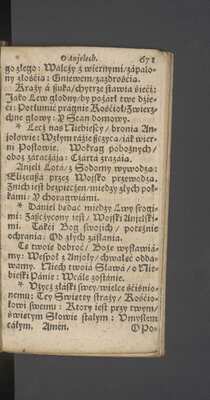 O Anjelech. 671
go złego: Walczy z wiernymi/zápalo-
ny złośćia: Gniewem/zazdrośćia.
Kraży á ßuka/chytrze stawia śieći:
Jáko Lew głodny/by pożárł twe dzie-
ći: Potłumić prágnie Kośćioł/Zwierz-
chne głowy: Y Stan domowy.
* Lecż nas Niebiescy/bronia An-
jołowie: W łym ráźie ßcżyca/iák wier-
ni Posłowie. Wokrag pobożnych/
oboz zátacżáia: Cżártá zráżáia.
Anjeli Lotá/z Sodomy wywodza:
Elizeußá przez Woysko przewodza,
Znich iest bezpiecżen/miedzy złych pol-
kámi/ Y choragwiámi.
* Daniel bedac miedzy Lwy srogi-
mi: Zaßcżycony iest/Woyski Anjelski-
mi. Tákći Bog swoich/ potężnie
ochrania: Od złych zásłánia.
Co twoie dobroć/ Boże wysławiá-
my: Wespoł z Anjoły/chwałęć oddá-
wamy. Niech twoia Sława/o Nie-
bieski Pánie: Wcále zostánie.
* Użycż zláski swey/wielce śćiśnio-
nemu: Tey Swiętey straży/ Kośćio-
łowi swemu: Ktory iest przy twym/
świętym Słowie stałym: Umysłem
cáłym. Amen.
O Po-